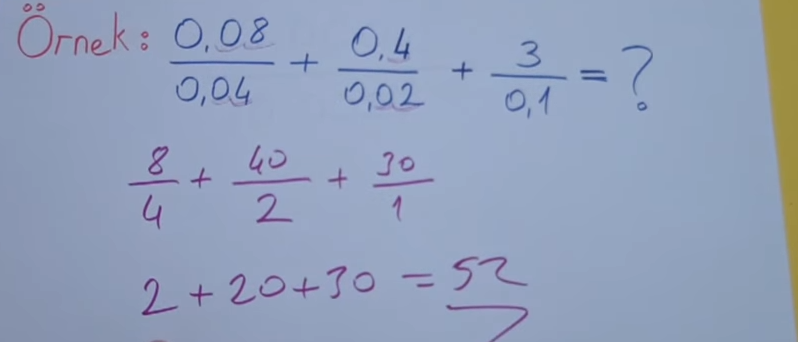 Örnek: 0,08/0,04 + 0,4/0,02 + 3/0,1 = ?
8/4 + 40/2 + 30/1
2 + 20 + 30 = 52